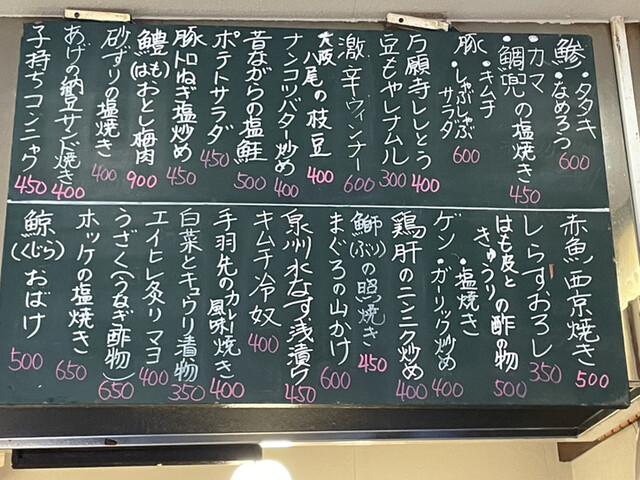 鯵・タタキ
・なめろう 600
・カマ
・鯛兜の塩焼き 450
豚・キムチ
・しゃぶしゃぶ
サラダ 600
万願寺ししとう 400
豆もやしナムル 300
激辛ウィンナー 600
大阪八尾の枝豆 400
ナンコツバター炒め 400
昔ながらの塩鮭 500
ポテトサラダ 450
豚トロねぎ塩炒め 450
鱧(はも)おとし梅肉 900
砂ずりの塩焼き 400
あげの納豆サンド焼き 400
子持ちコンニャク 450
赤魚西京焼き 500
しらすおろし 350
はも皮と
きゅうりの酢の物 500
ゲン・塩焼き
・ガーリック炒め 400
鶏肝のニンニク炒め 400
鰤(ぶり)の照焼き 450
まぐろの山かけ 600
泉州水なす浅漬け 350
キムチ冷奴 400
手羽先のカレー
風味焼き 400
白菜とキュウリ漬物 350
エイヒレ炙りマヨ 400
うざく(うなぎ酢物) 650
ホッケの塩焼き 650
鯨(くじら)おばけ 500